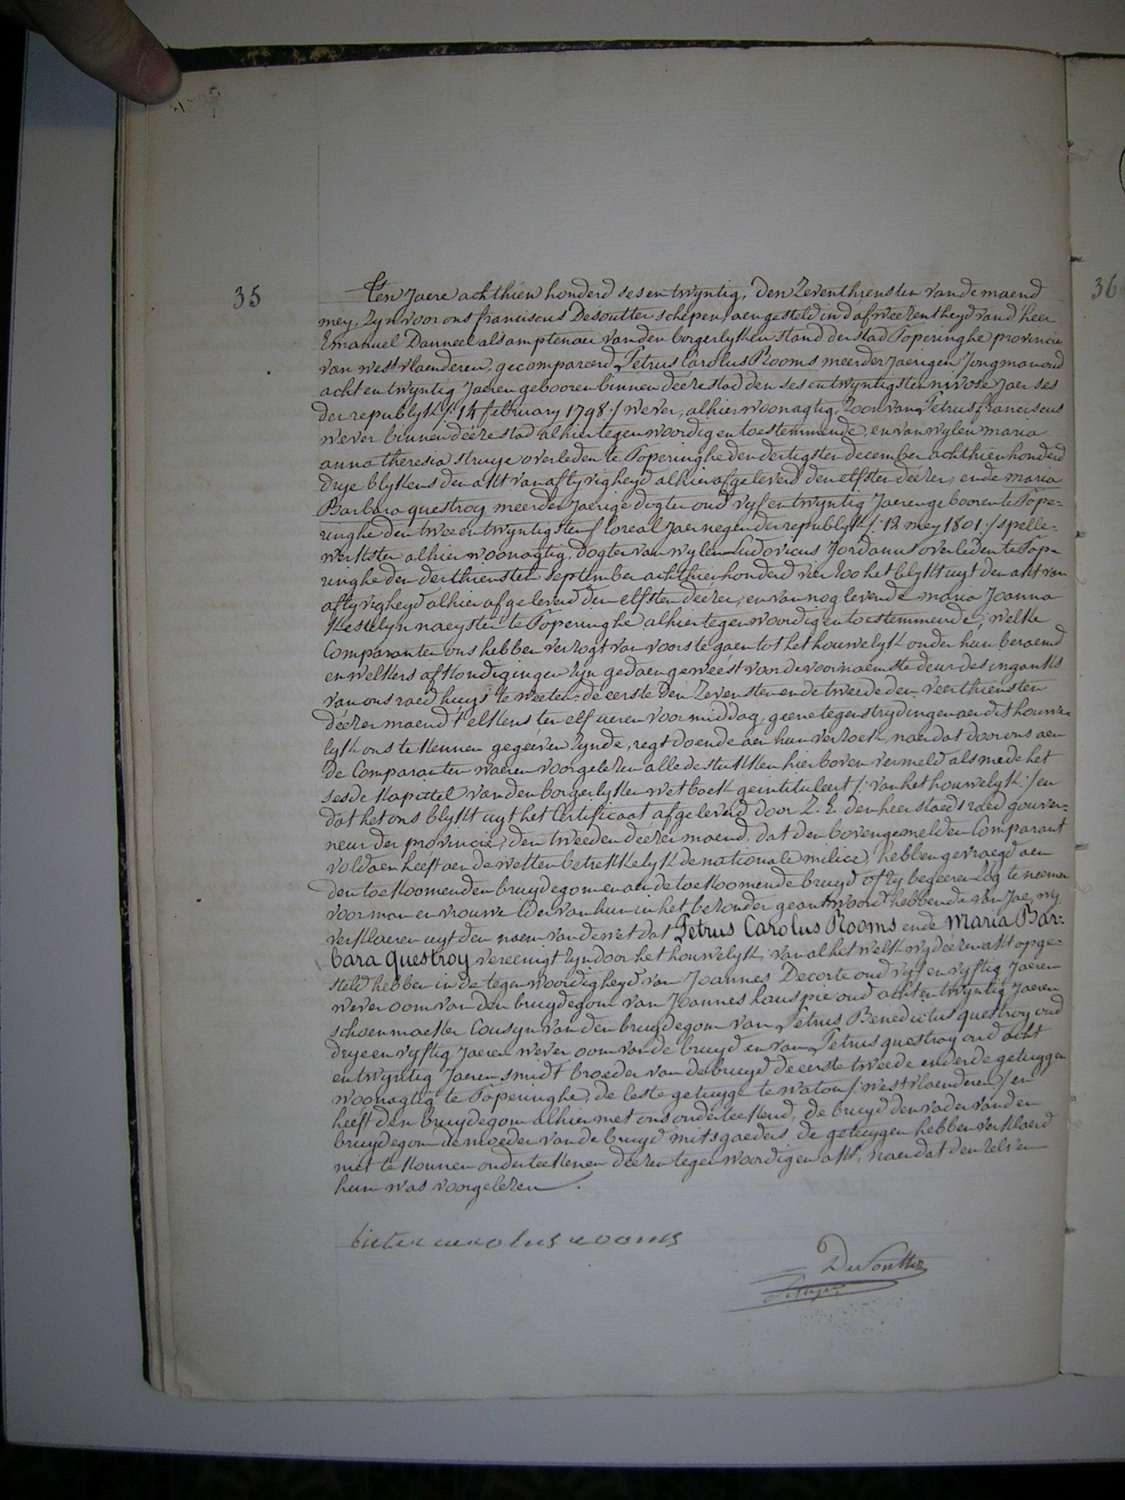 35
Ten Jaere achthien honderd ses en twyntig, den Zeventhiensten van de maend
mey, Zyn voor ons franciscus Desoutter schepen, aengesteld in d'afweezentheyd van d'heer
Emanuel Danneel als amptenaer van den borgerlyken stand der stad Poperinghe provincie
van westvlaenderen, gecompareerd Petrus Carolus Rooms meerderjaerigen Jongman oud
acht en twyntig Jaeren gebooren binnen déeze stad den ses en twyntigsten nivose Jaer ses
der republyk /: 14 february 1798 :/ wever, alhier woonagtig, Zoon van Petrus franciscus
wever binnen déeze stad alhier tegenwoordig en toestemmende, en van wylen maria
anna theresia struye overleden te Poperinghe den dertigsten december achthien honderd
drye blykens den akt van aflyvigheyd alhier afgeleverd den elfsten déezer; ende maria
Barbara questroy meerderjaerige dogter oud vyf en twyntig Jaeren gebooren te Pope-
ringhe den twee en twyntigsten floreal Jaer negen der republyk /: 12 mey 1801 :/ spelle-
werkster alhier woonagtig, dogter van wylen Ludovicus Jordanus overleden te Pope-
ringhe den derthiensten september achthien honderd vier Zoo het blykt uyt den akt van
aflyvigheyd alhier afgeleverd den elfsten déezer, en van nog levende maria Joanna
Kestelyn naeyster te Poperinghe alhier tegenwoordig en toestemmende; welke
Comparanten ons hebben verzogt van voorts te gaen tot het houwelyk onder hun beraemd
en welkers afkondigingen zyn gedaen geweést voor de voornaemste deur des ingangs
van ons raedhuys te weeten: de eerste den Zevensten en de tweede den veerthiensten
déezer maend t'elkens ten elf ueren voormiddag, geene tegenstrydingen aen dit houwe-
lyk ons te kennen gegéeven zynde, regt doende aen hun verzoek, naer dat door ons aen
de Comparanten waeren voorgelezen alle de stukken hier boven vermeld als mede het
sesde kapittel van den borgerlyken wetboek geintituleert /: van het houwelyk :/ en
dat het ons blykt uyt het Certificaat afgeleverd door Z. E. den heer staedsraed gouver-
neur der provincie, den tweeden dezer maend, dat den bovengemelden Comparant
voldaen heeft aen de wetten betrekkelyk de nationale milicie, hebben gevraegd aen
den toekoomenden bruydegom en aen de toekoomende bruyd of zy begeeren zig te neemen
voor man en vrouwe Ider van hun in het bezonder geantwoord hebbende van Jae, wy
verklaeren uyt den naem van de wet dat Petrus Carolus Rooms ende Maria Bar-
bara Questroy vereenigt zyn door het houwelyk, van al het welk wy déezen akt opge-
steld hebben in de tegenwoordigheyd van Joannes Decorte oud vyf en vyftig Jaeren
wever oom van den bruydegom van Joannes hauspie oud acht en twyntig Jaeren
schoenmaeker Cousyn van den bruydegom van Petrus Benedictus questroy oud
drye en vyftig Jaeren wever oom van de bruyd en van Petrus questroy oud acht
en twyntig Jaeren smidt broeder van de bruyd de eerste tweede en derde getuygen
woonagtig te Poperinghe, de leste getuyge te watou /: westvlaenderen :/ en
heeft den bruydegom alhier met ons onderteekend, de bruyd den vader van den
bruydegom de moeder van de bruyd mitsgaeders de getuygen hebben verklaerd
niet te konnen onderteekenen déezen tegenwoordigen akt, naer dat den zelven
hun was voorgelezen.
pieter carolus rooms
DeSoutter
36